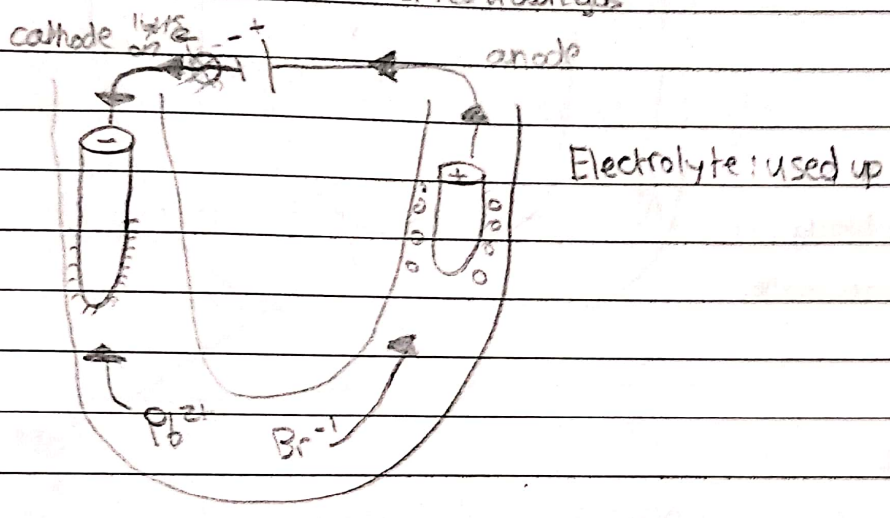 cathode
lights
on
- +
anode
-
+
Electrolyte: used up
Pb²⁺
Br⁻¹